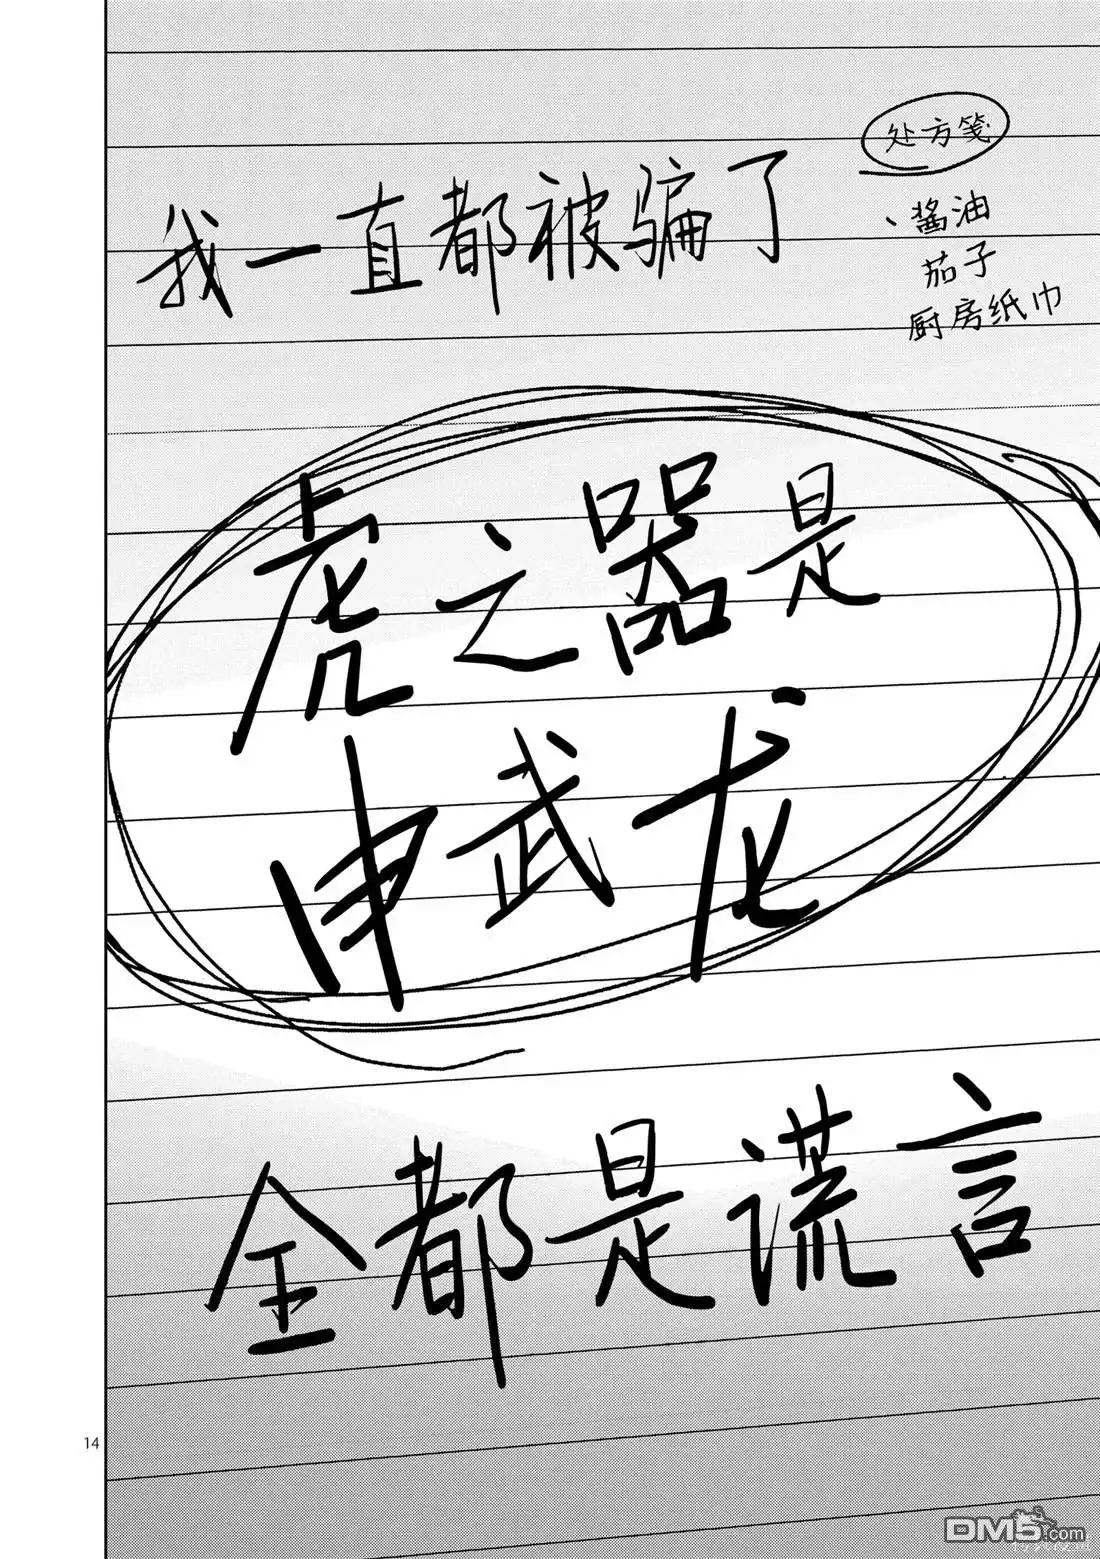 处方笺
、酱油
茄子
厨房纸巾
我一直都被骗了
虎之器是
申武龙
全都是谎言
14
DM5.com